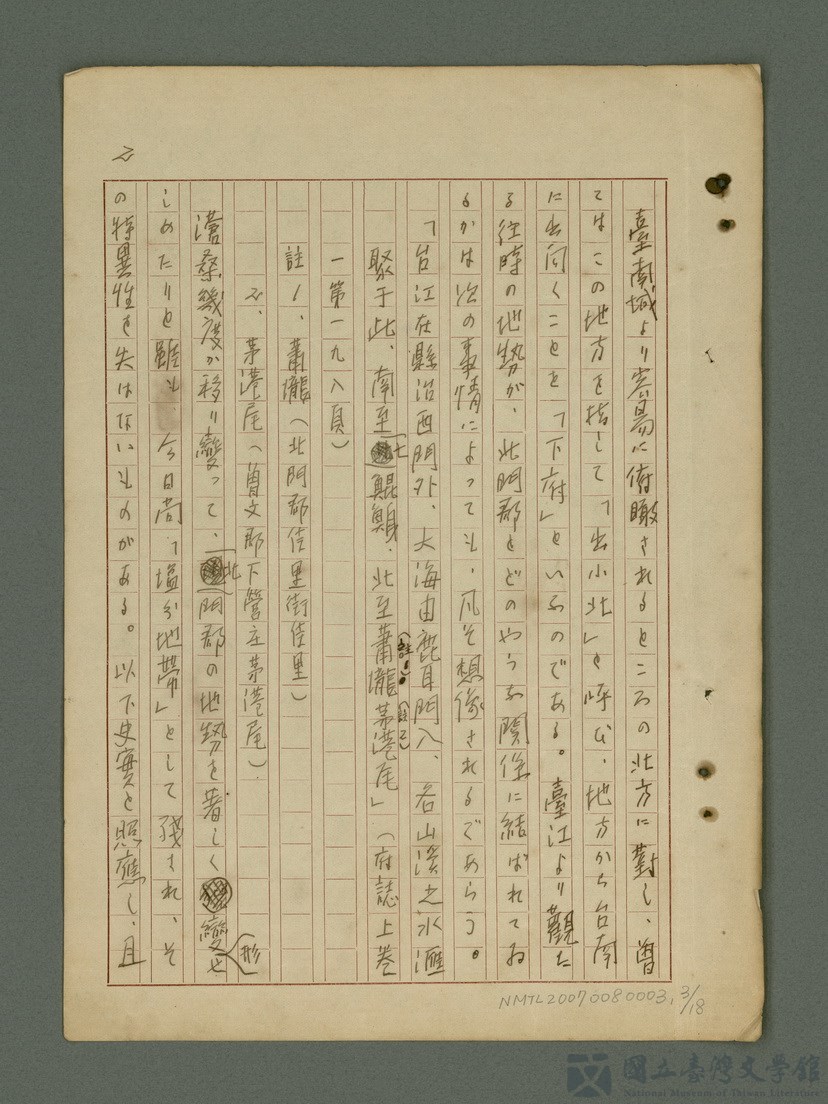 2
臺南城より容易に俯瞰されるところの北方に對し、曾
てはこの地方を指して「出小北」と呼び、地方から台南
に出向くことを「下府」といふのである。臺江より觀た
る往時の地勢が、北門郡とどのやうな關係に結ばれてゐ
るかは次の事情によつても、凡そ想像されるであらう。
「台江在縣治西門外、大海由鹿耳門入、各山溪之水滙
聚于此、南至七鯤鯓、北至蕭壠(註1)茅港尾(註2)」（府誌上卷
一第一九八頁）
註1、蕭壠（北門郡佳里街佳里）
2、茅港尾（曽文郡下營庄茅港尾）
滄桑幾度か移り變って、北門郡の地勢を著しく變形せ
しめたりと雖も、今日尚「塩分地帶」として殘され、そ
の特異性を失はないものがある。以下史實と照應し、且
NMTL20070080003, 3/18
國立臺灣文學館
National Museum of Taiwan Literature